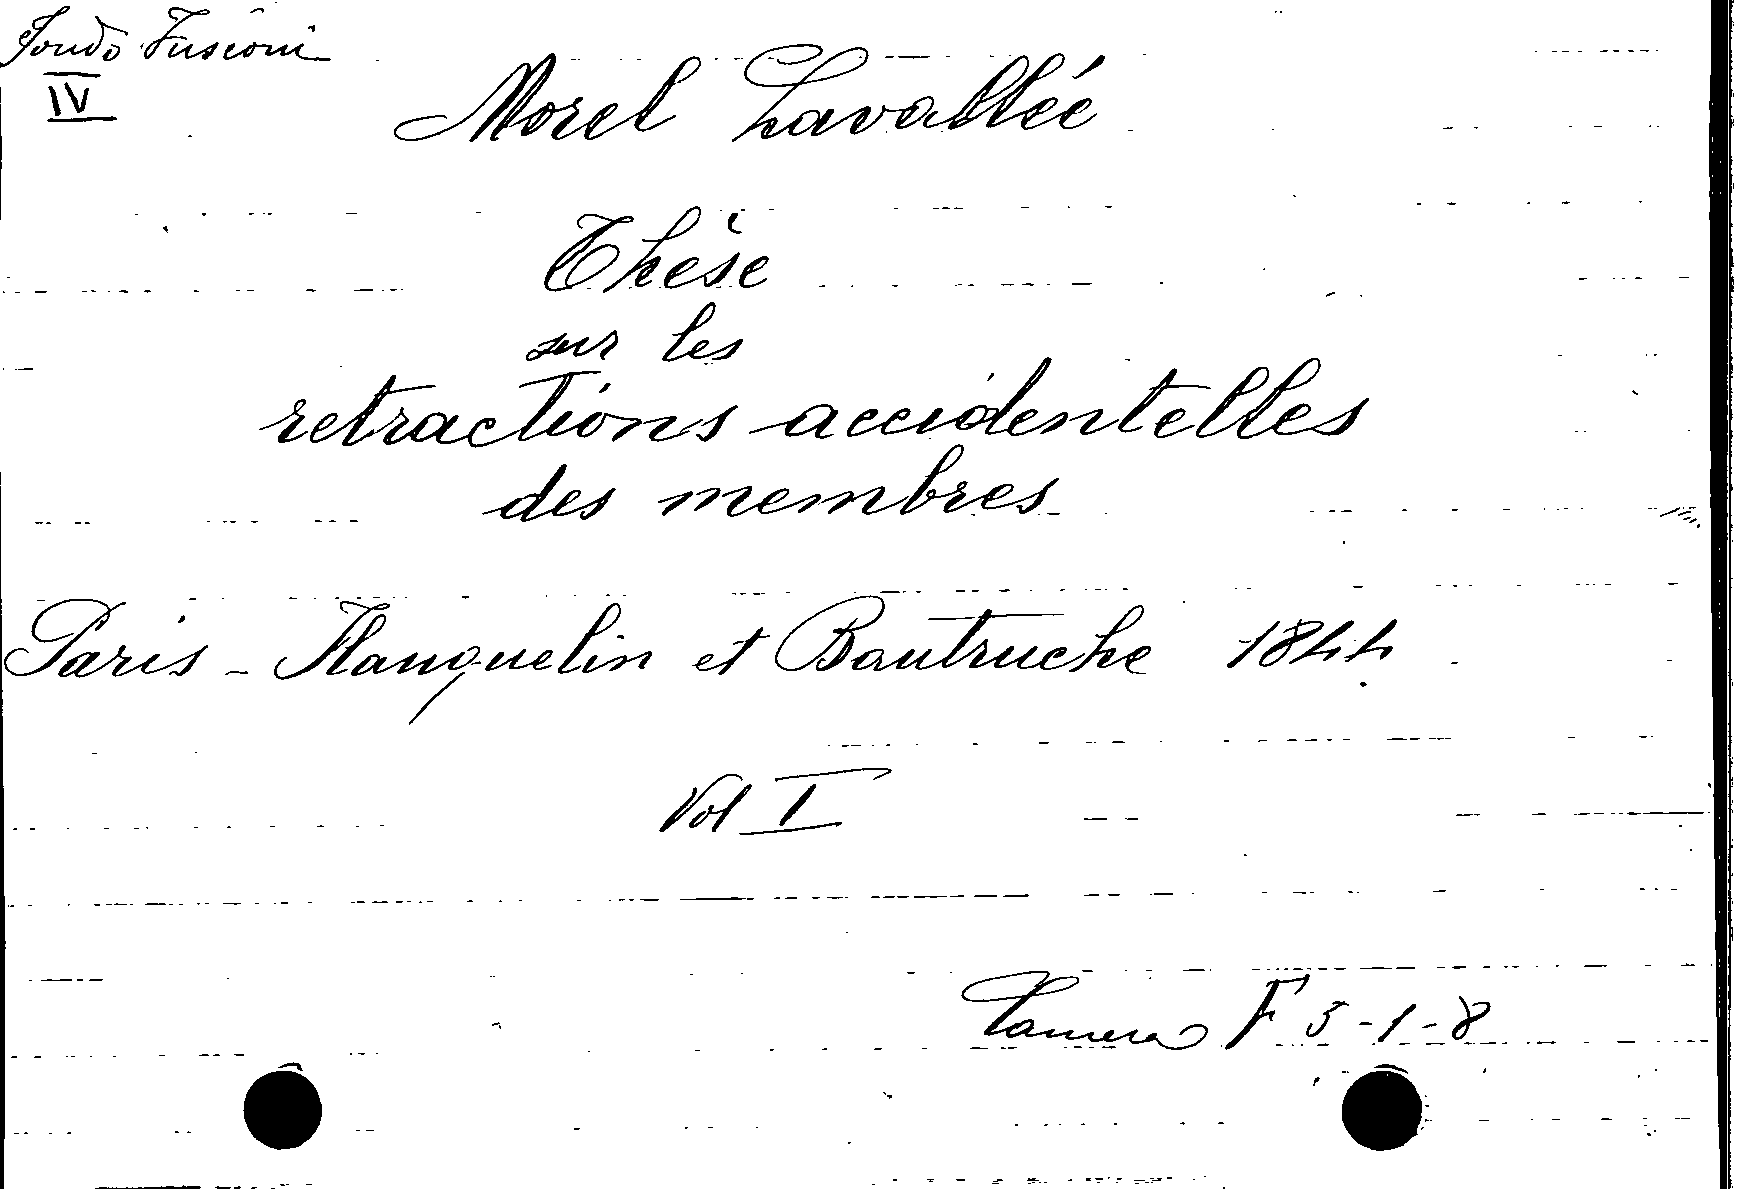 Fondo Fusconi
IV
Morel Lavallée
Thèse
sur les
retractions accidentelles
des membres
Paris - Hauquelin et Bautruche 1844
Vol I
Camera F 5-1-8